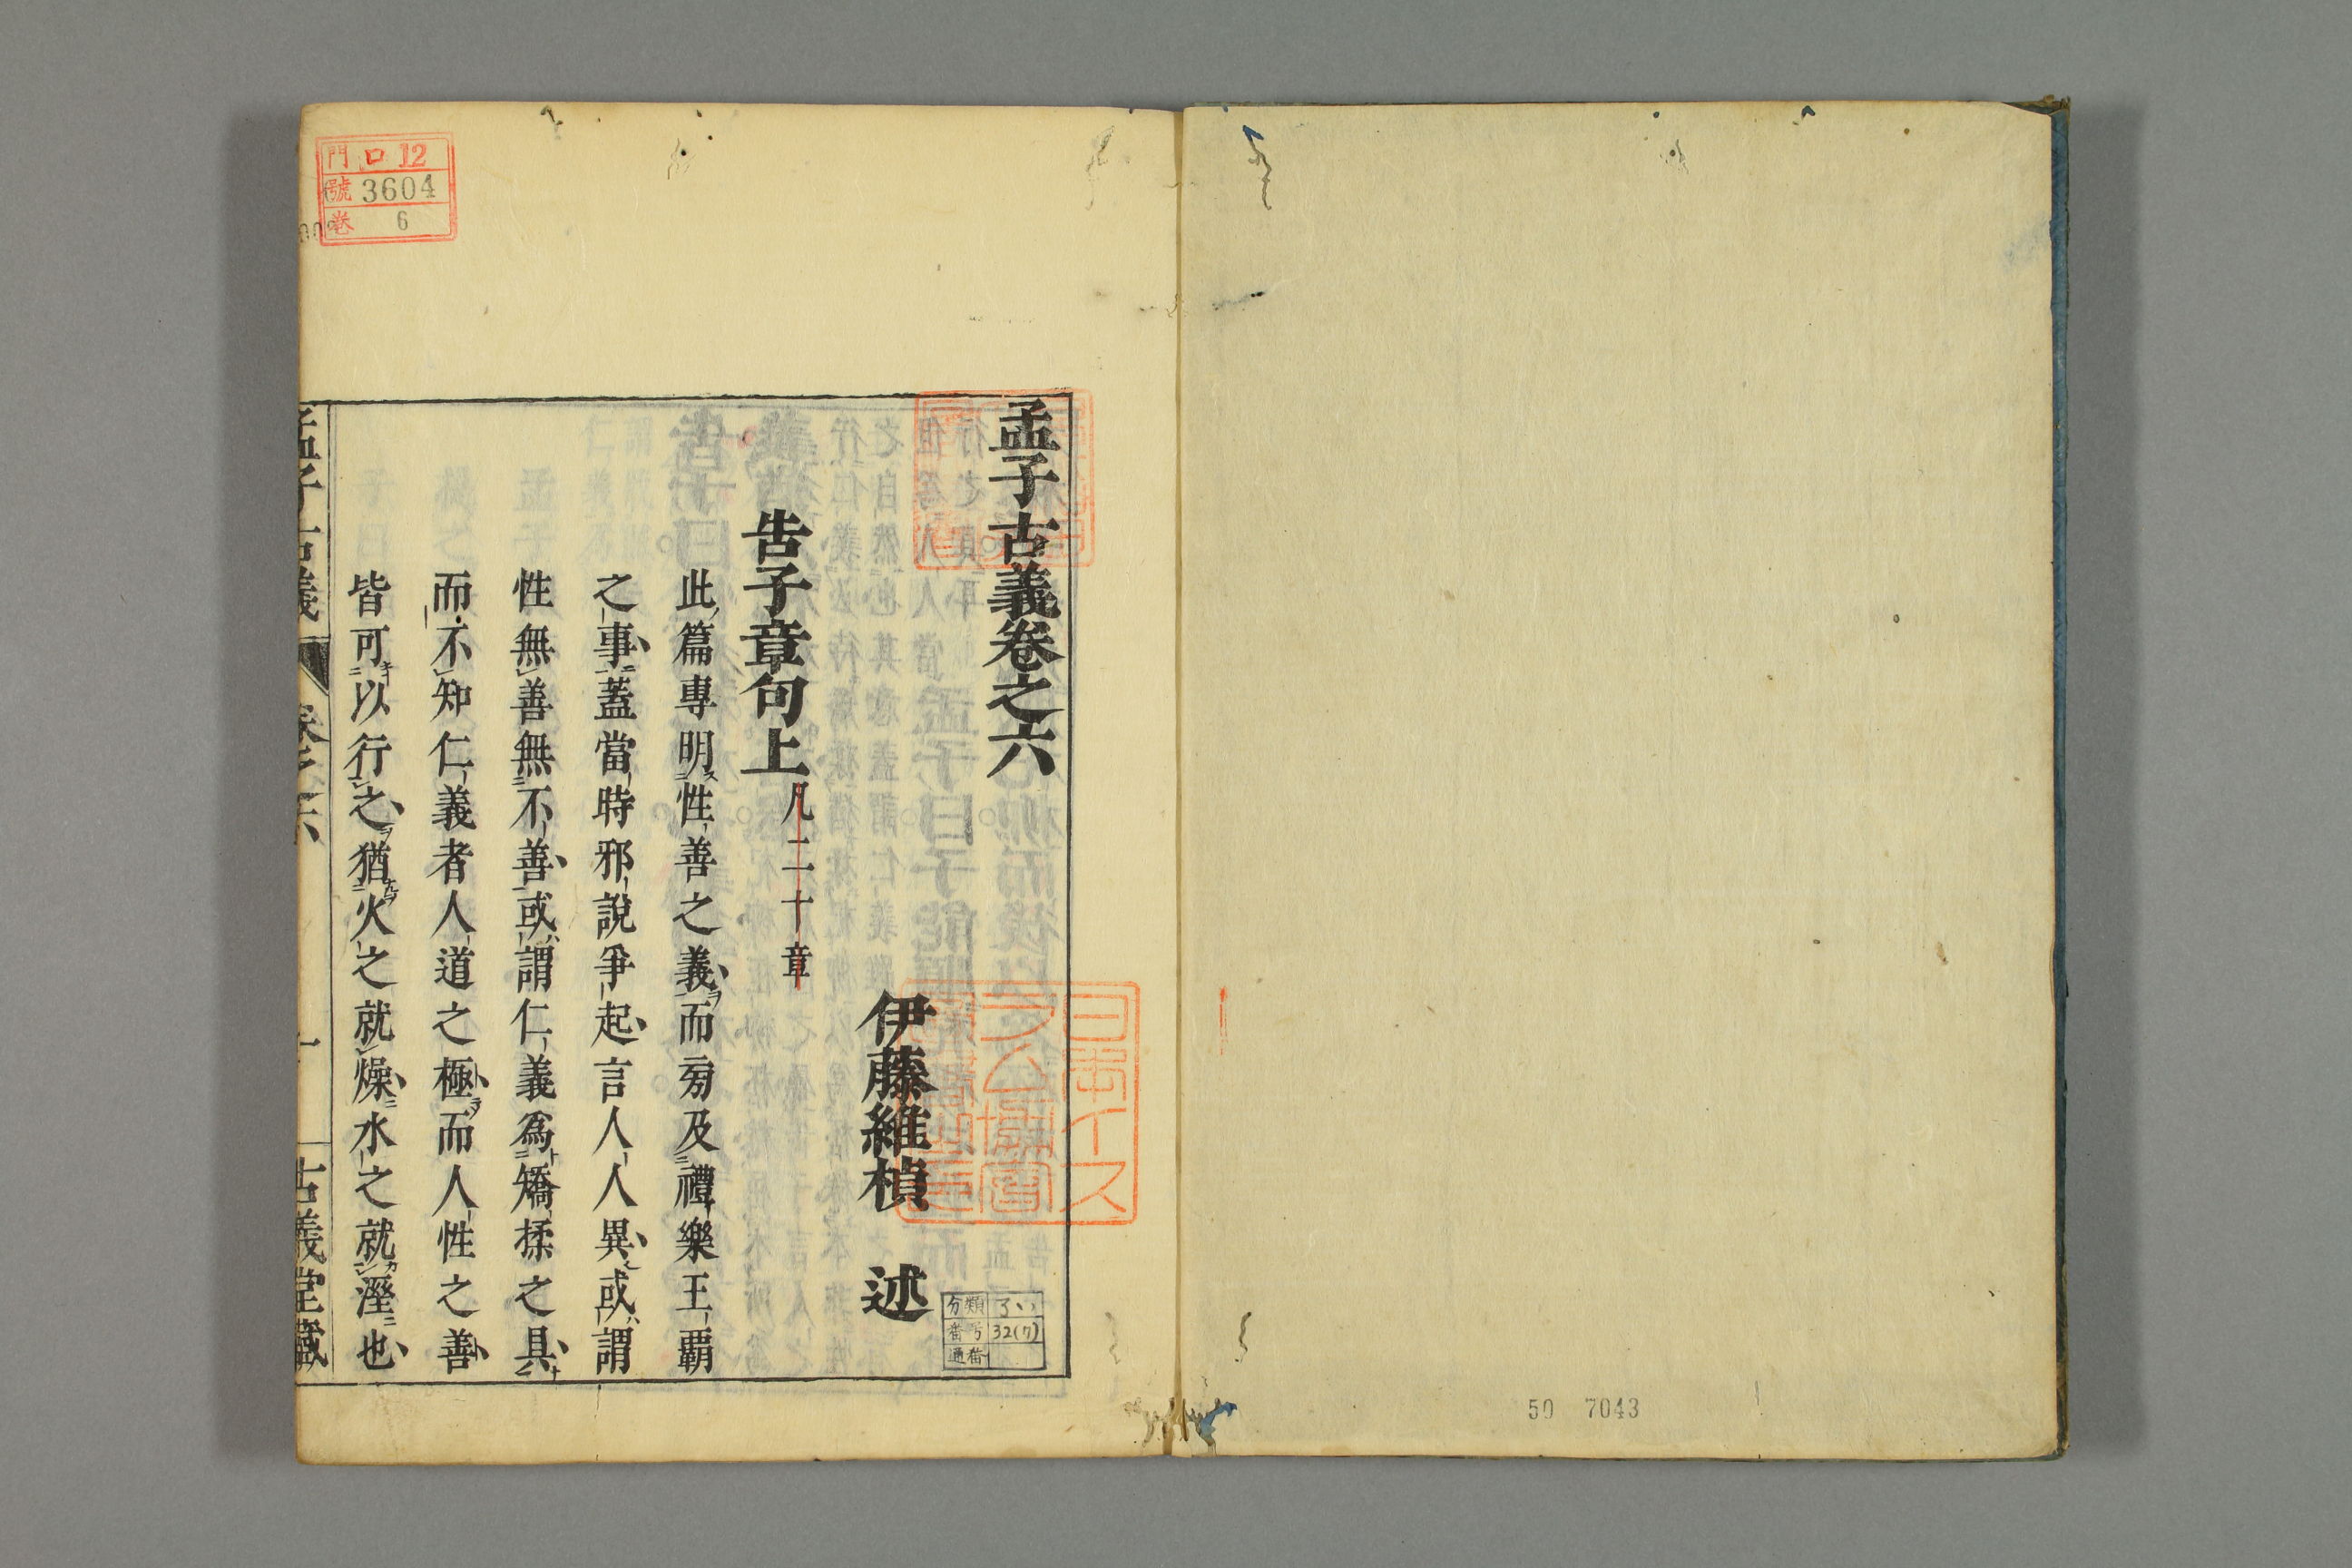 孟子古義卷之六
伊藤維楨 述
告子章句上 凡二十章
此篇專明性善之義而旁及禮樂王覇
之事蓋當時邪說爭起言人人異或謂
性無善無不善或謂仁義爲矯揉之具
而不知仁義者人道之極而人性之善
皆可以行之猶火之就燥水之就溼也
孟子古義 卷之六
古義堂藏
門 口 12
號 3604
巻 6
日本イス
ラム協會
分類
番号 32(7)
通番
50 7043